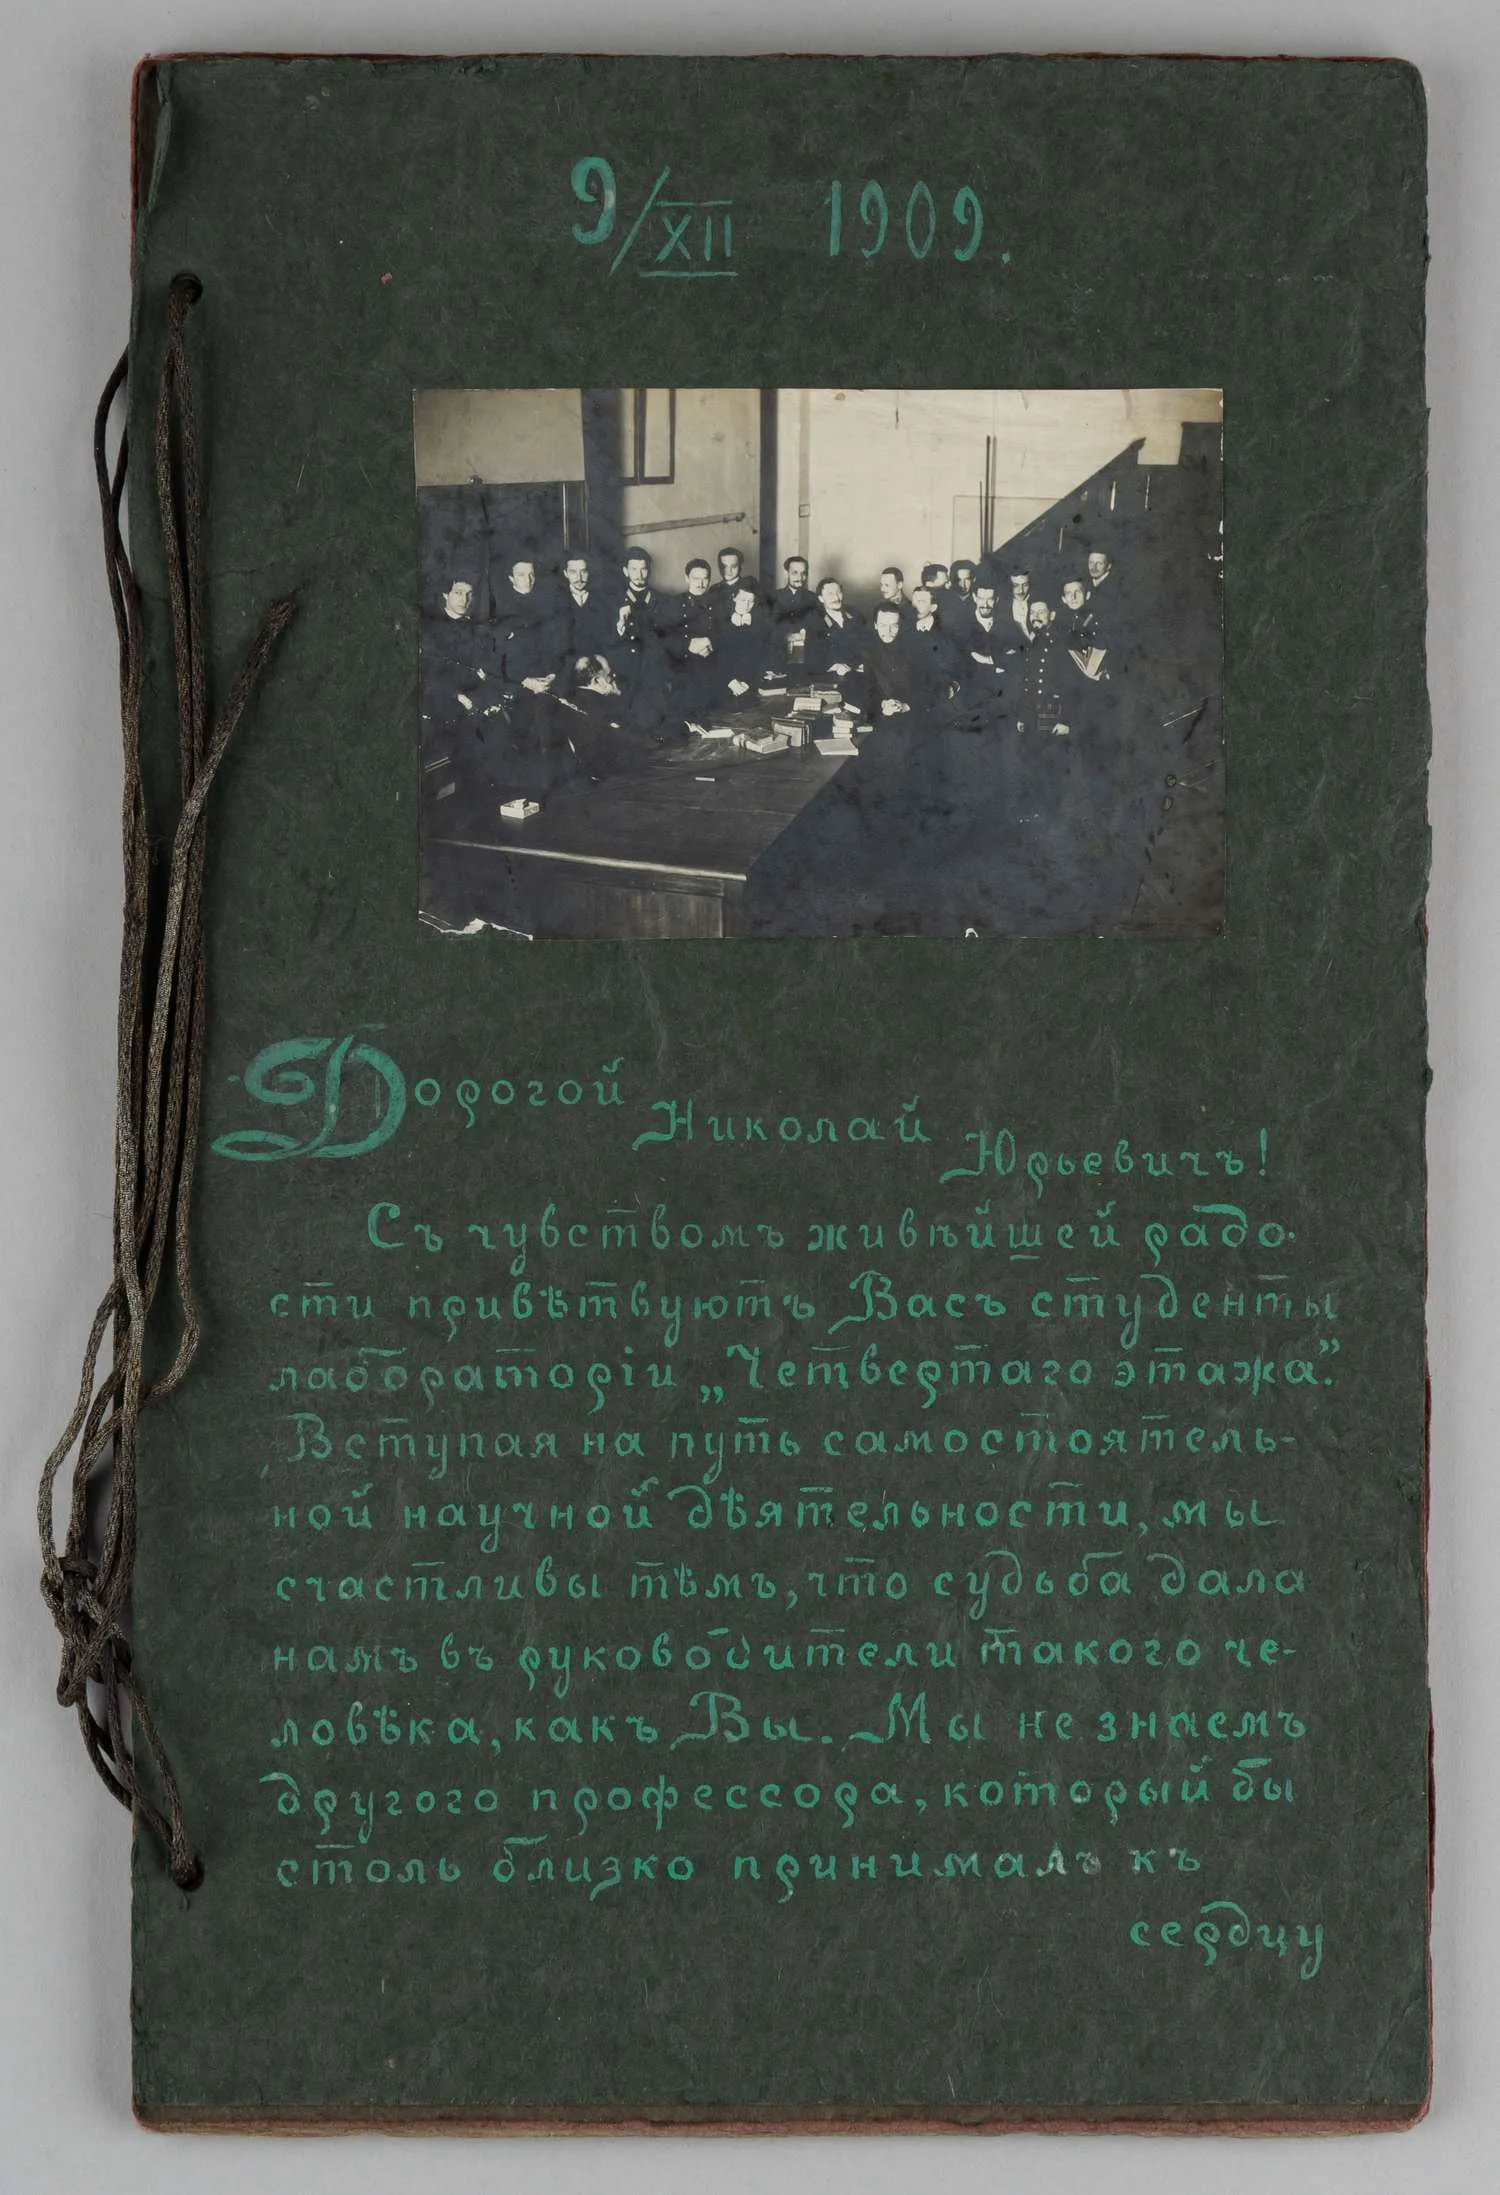 9/XII 1909.
Дорогой Николай Юрьевичъ!
Съ чувствомъ живѣйшей радо-
сти привѣтвуютъ Васъ студенты
лабораторіи „Четвертаго этажа”.
Вступая на путь самостоятель-
ной научной дѣятельности, мы
счастливы тѣмъ, что судьба дала
намъ въ руководители такого че-
ловѣка, какъ Вы. Мы не знаемъ
другого профессора, который бы
столь близко принималъ къ
сердцу